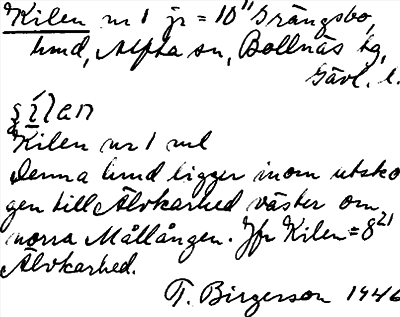 Kilen nr 1 jr = 10¹¹ Grängsbo,
hmd, Alfta sn, Bollnäs tg,
Gävl. l.
çílan
Kilen nr 1 ml
Denna hmd ligger inom utsko
gen till Älvkarhed väster om
norra Mållången. Jfr Kilen = 8²¹
Älvkarhed.
T. Birgerson 1946